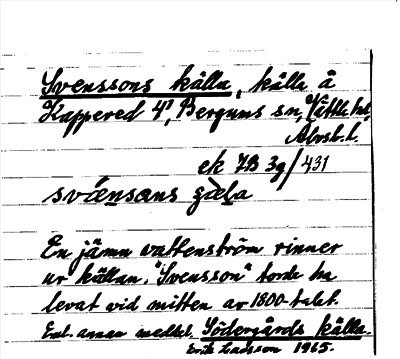 Svenssons källa, källa å
Kappered 4¹, Bergums sn, Vättle hd,
Älvsb. l.
ek 7B 3g/431
svǽnsons çæ̀la
En jämn vattenström rinner
ur källan. "Svensson" torde ha
levat vid mitten av 1800-talet.
Enl. annan meddel. Södergårds källa.
Erik Larsson 1965.